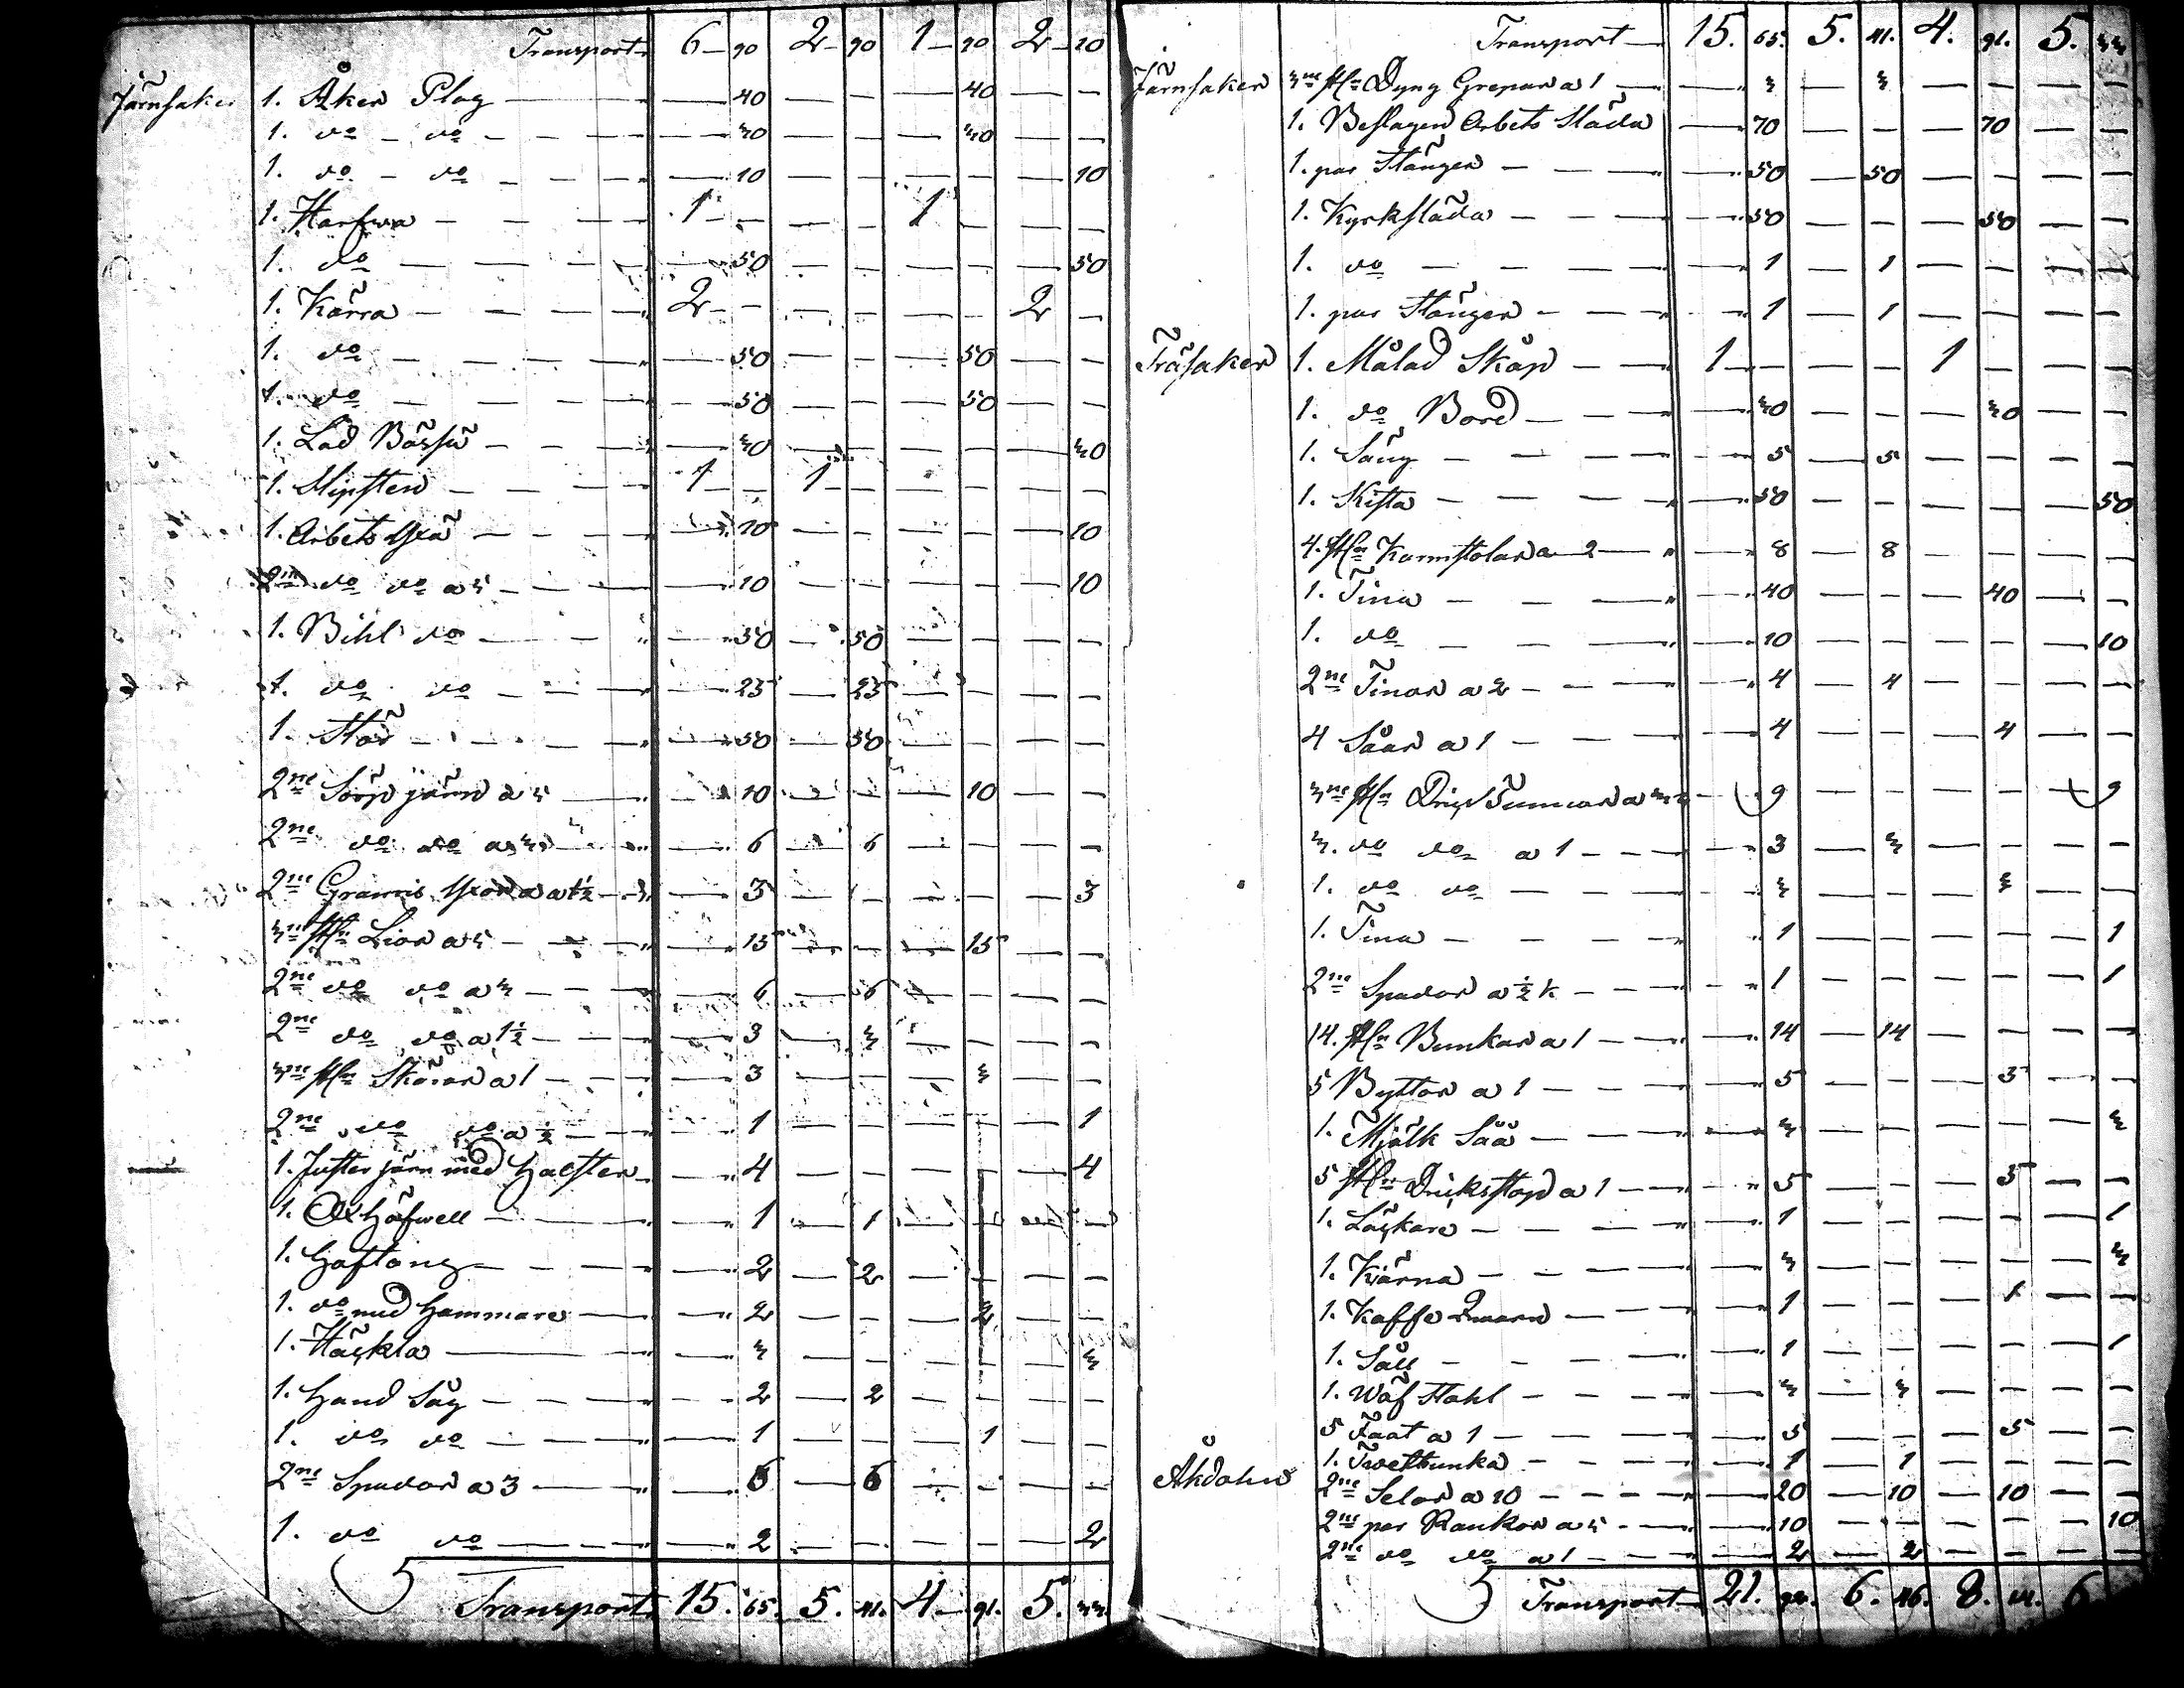 Transport 6 – 90 2 – 90 1 – 90 2 – 10
Järnsaker 1. Åker Plog – 40 – – – 40 – –
1. do – do – 30 – – – 30 – –
1. do – do – 10 – – – – – 10
1. Harfwa 1 – – – 1 – – –
1. do – 50 – – – – – 50
1. Kärra 2 – – – – – 2 –
1. do – 50 – – – 50 – –
1. do – 50 – – – 50 – –
1. Lod Bössa – 30 – – – – – 30
1. Slipsten 1 – 1 – – – – –
1. Arbets Yxa – 10 – – – – – 10
2ne do do a 5 – 10 – – – – – 10
1. Bihl do – 50 – 50 – – – –
1. do do – 25 – 25 – – – –
1. Stör – 50 – 50 – – – –
2ne Sörp järn a 5 – 10 – – – 10 – –
2ne do do a 3 – 6 – 6 – – – –
2ne Yxor a 1½ – 3 – – – – – 3
3ne st Liar a 5 – 15 – – – 15 – –
2ne do do a 3 – 6 – 6 – – – –
2ne do do a 1½ – 3 – 3 – – – –
3ne st Skäror a 1 – 3 – – – 3 – –
2ne do do a ½ – 1 – – – – – 1
1. järn med – 4 – – – – – 4
1. Ox höfwell – 1 – 1 – – – –
1. Hoftång – 2 – 2 – – – –
1. do med hammare – 2 – – – 2 – –
1. Häckla – 3 – – – – – 3
1. Hand Såg – 2 – 2 – – – –
1. do do – 1 – – – 1 – –
2ne Spador a 3 – 6 – 6 – – – –
1. do do – 2 – – – – – 2
Transport 15. 65. 5. 41. 4 – 91. 5. 33.
Transport 15. 65. 5. 41. 4. 91. 5. 33
Järnsaker 3ne st Dyng Grepar a 1 – 3 – 3 – – – –
1. Beslagen Arbets Släda – 70 – – – 70 – –
1. par Stänger – 50 – 50 – – – –
1. Kyrksläda – 50 – – – 50 – –
1. do – 1 – 1 – – – –
1. par Stänger – 1 – 1 – – – –
Träsaker 1. Målad Skåp 1 – – – 1 – – –
1. do Bord – 30 – – – 30 – –
1. Säng – 5 – 5 – – – –
1. Kista – 50 – – – – – 50
4. st Karmstolar a 2 – 8 – 8 – – – –
1. Tina – 40 – – – 40 – –
1. do – 10 – – – – – 10
2ne Tinor a 2 – 4 – 4 – – – –
4 Såar a 1 – 4 – – – 4 – –
3ne st Tunnor a 3 – 9 – – – – – 9
3. do do a 1 – 3 – 3 – – – –
1. do do – 3 – – – 3 – –
1. Tina – 1 – – – – – 1
2ne Spador a ½ k – 1 – – – – – 1
14. st Bunkar a 1 – 14 – 14 – – – –
5 Byttor a 1 – 5 – – – 5 – –
1. Mjölk Såå – 3 – – – – – 3
5 st Dricksstop a 1 – 5 – – – 5 – –
1. – 1 – – – – – 1
1. Kiärna – 3 – – – – – 3
1. Kaffe Quarn – 1 – – – 1 – –
1. Såll – 1 – – – – – 1
1. Wäf Stohl – 3 – 3 – – – –
5 Faat a 1 – 5 – – – 5 – –
1. Twettbunka – 1 – 1 – – – –
Åkdohn 2ne Selar a 10 – 20 – 10 – 10 – –
2ne par Rankor a 5 – 10 – – – – – 10
2ne do do a 1 – 2 – 2 – – – –
Transport 21. 6. 46. 8. 6